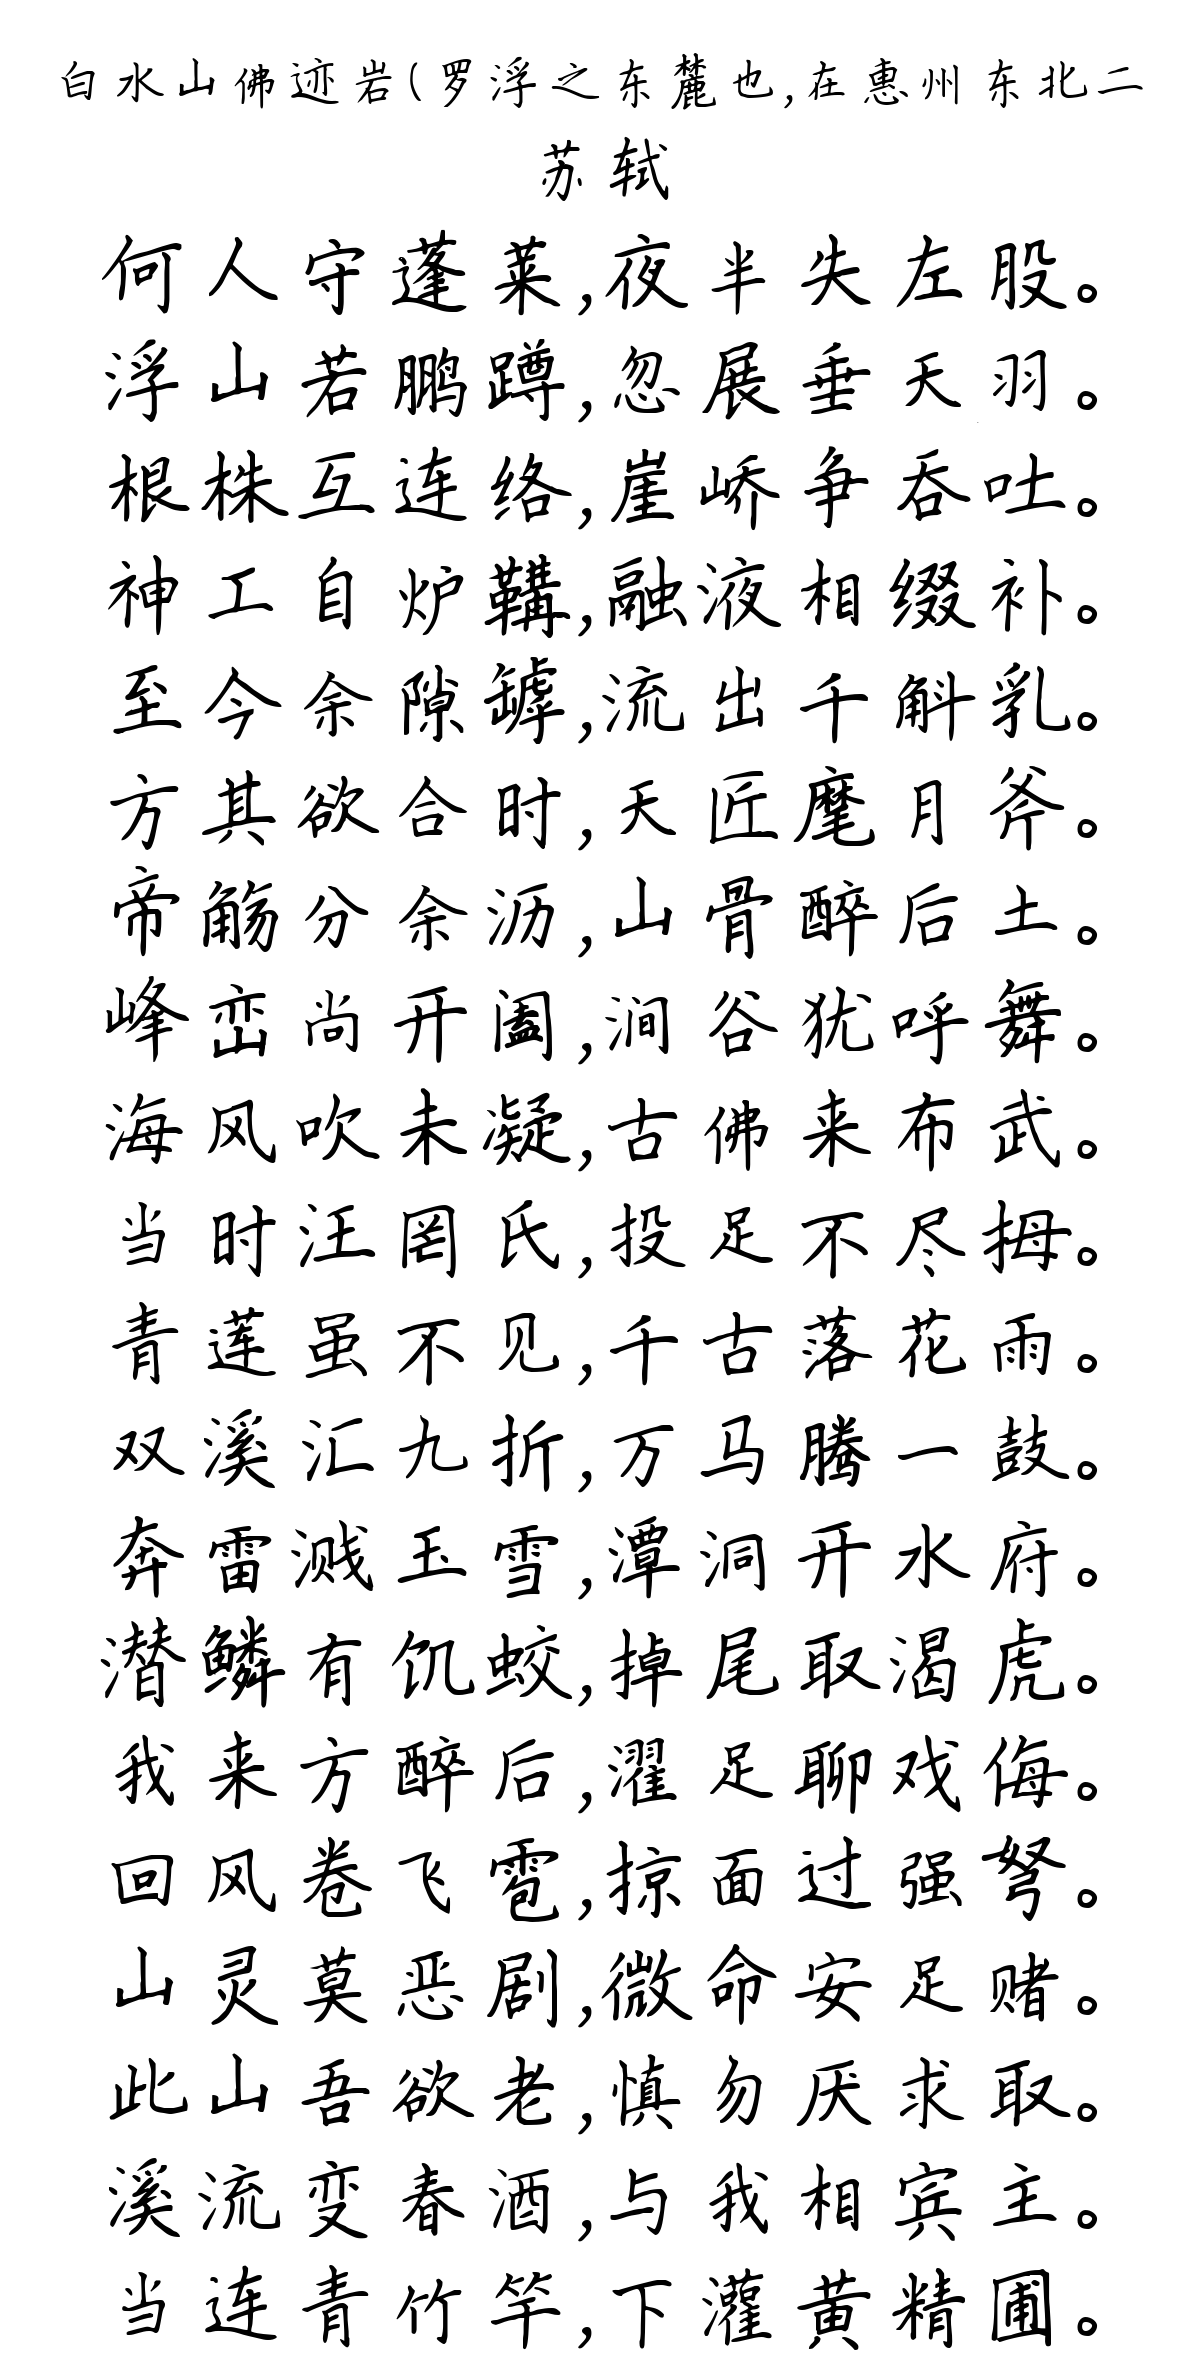 白水山佛迹岩(罗浮之东麓也,在惠州东北二
苏轼
何人守蓬莱,夜半失左股。
浮山若鹏蹲,忽展垂天羽。
根株互连络,崖峤争吞吐。
神工自炉鞲,融液相缀补。
至今余隙罅,流出千斛乳。
方其欲合时,天匠麾月斧。
帝觞分余沥,山骨醉后土。
峰峦尚开阖,涧谷犹呼舞。
海风吹未凝,古佛来布武。
当时汪罔氏,投足不尽拇。
青莲虽不见,千古落花雨。
双溪汇九折,万马腾一鼓。
奔雷溅玉雪,潭洞开水府。
潜鳞有饥蛟,掉尾取渴虎。
我来方醉后,濯足聊戏侮。
回风卷飞雹,掠面过强弩。
山灵莫恶剧,微命安足赌。
此山吾欲老,慎勿厌求取。
溪流变春酒,与我相宾主。
当连青竹竿,下灌黄精圃。